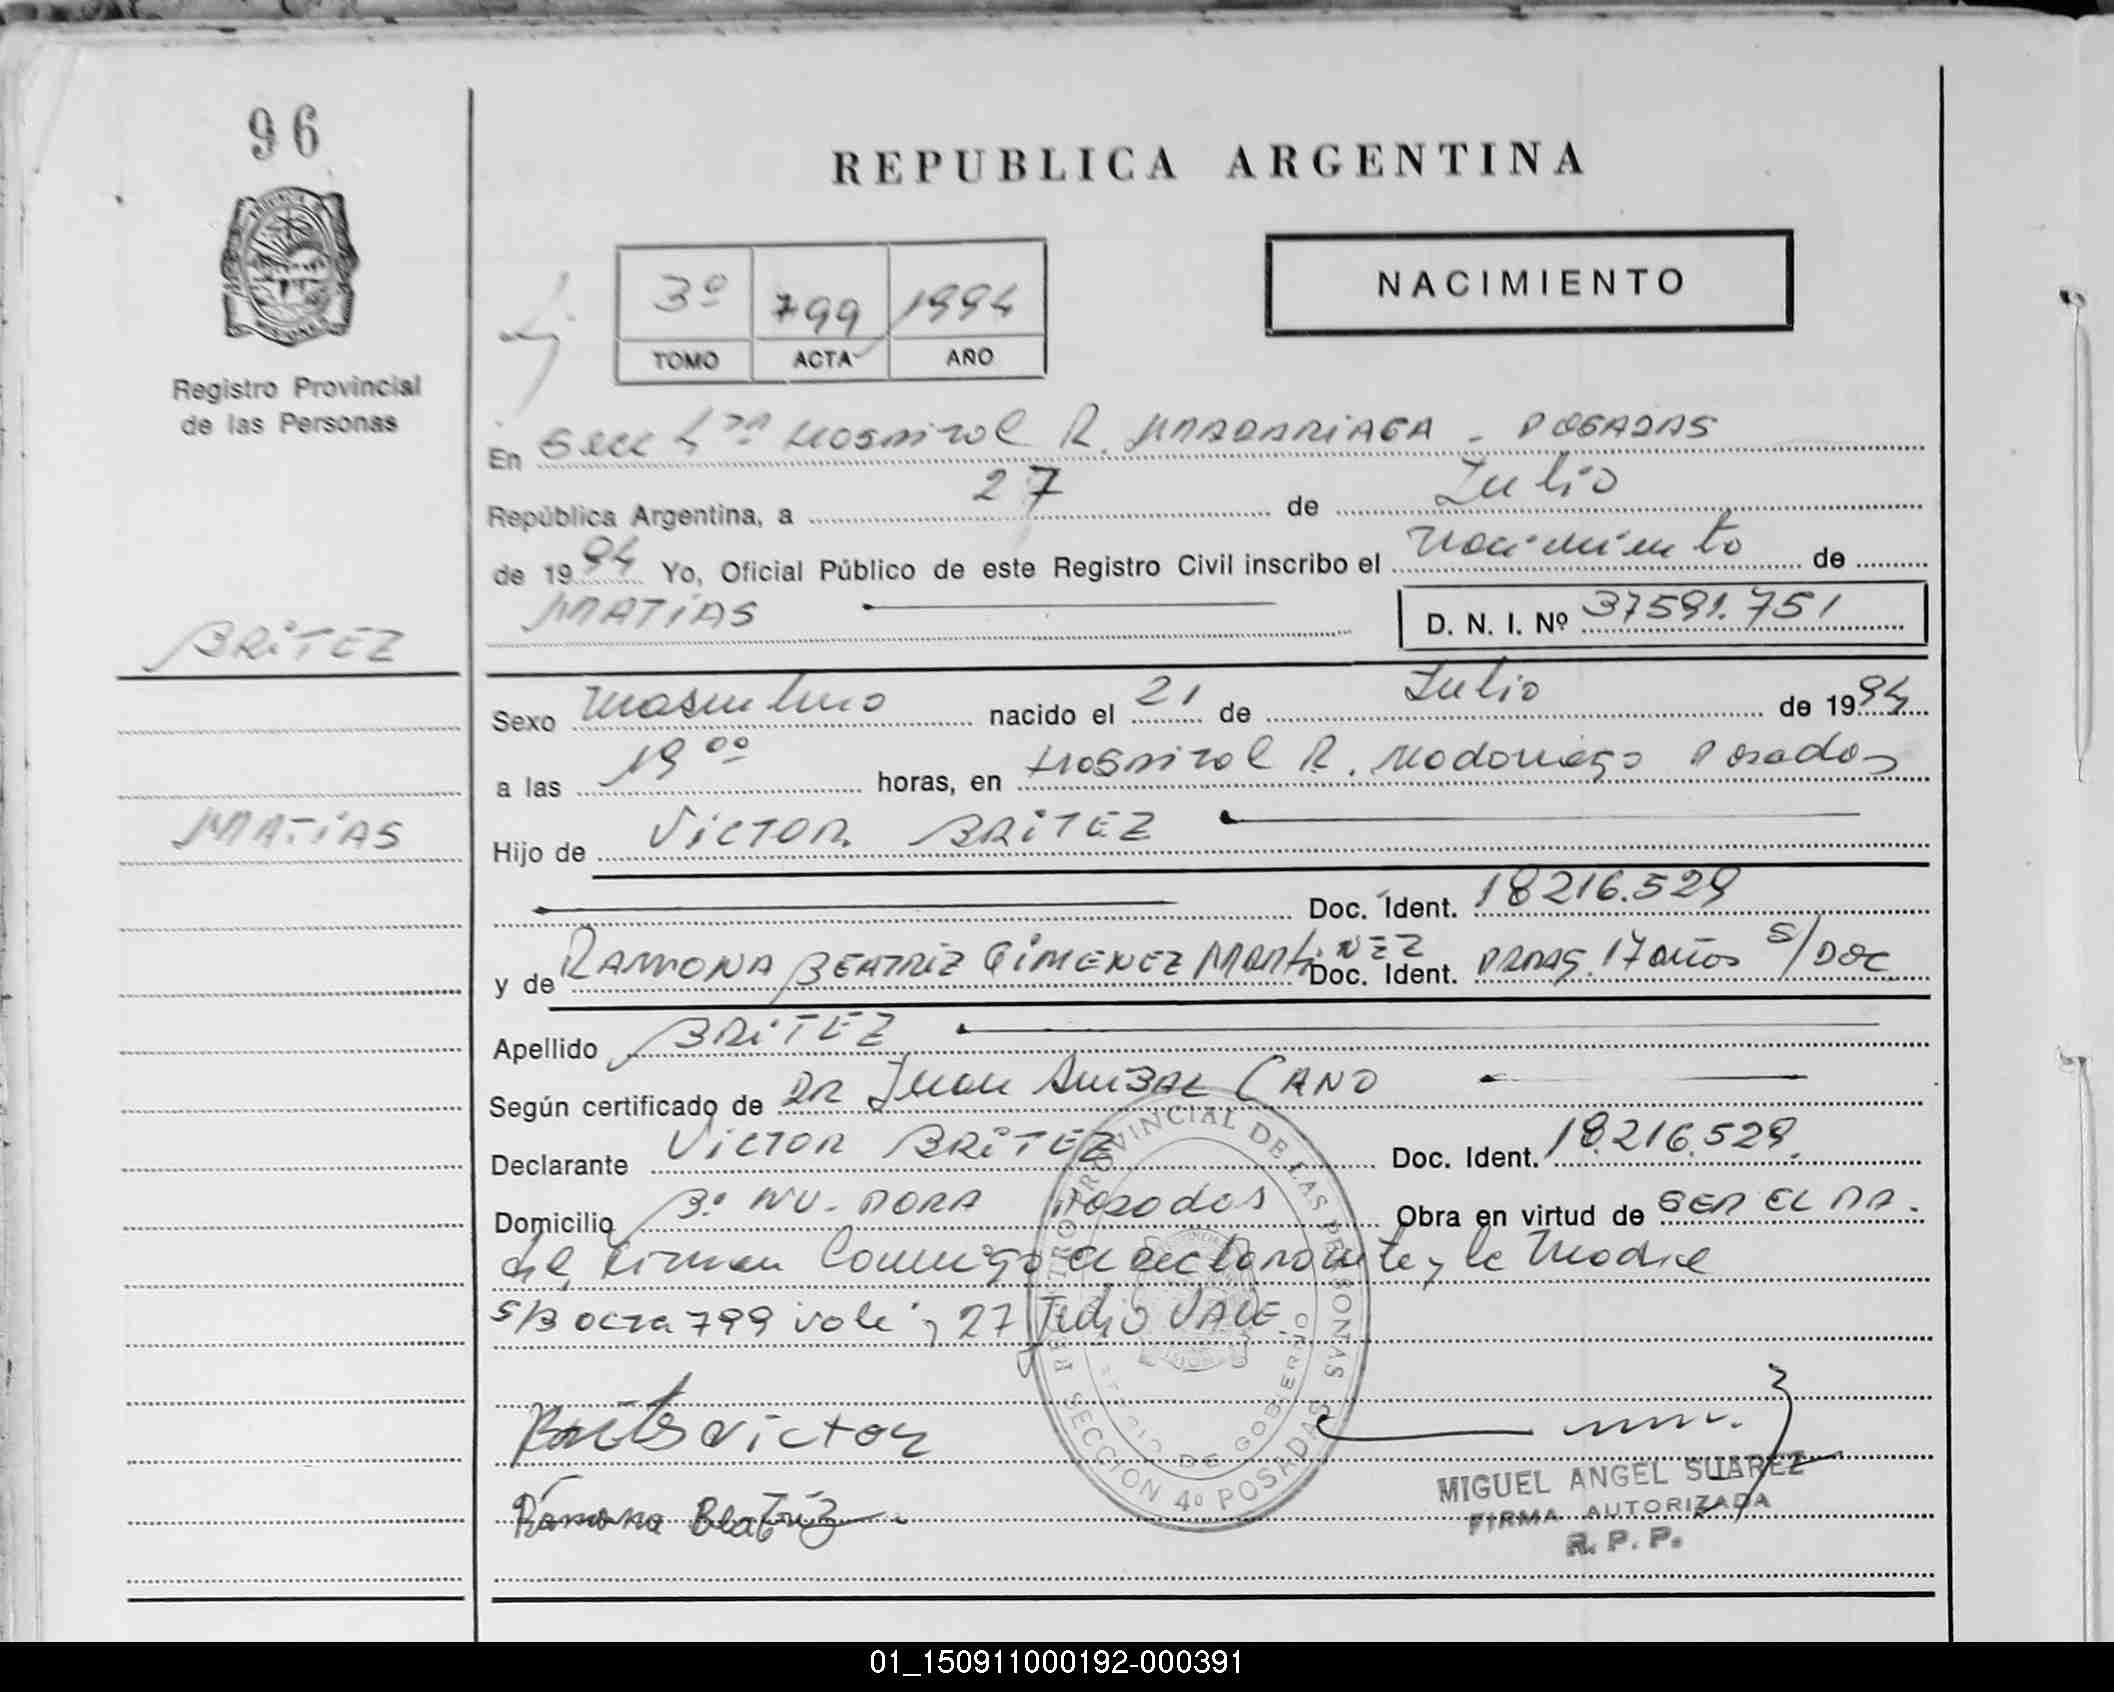 96
REPUBLICA ARGENTINA
NACIMIENTO
3º 799 1994
TOMO ACTA AÑO
Registro Provincial
de las Personas
En Secc 4ta Hospital R. MADARIAGA - POSADAS
República Argentina, a 27 de Julio
de 1994 Yo, Oficial Público de este Registro Civil inscribo el Nacimiento de
MATIAS D. N. I. Nº 37591.751
BRITEZ
Sexo Masculino nacido el 21 de Julio de 1994
a las 19 00 horas, en Hospital R. Madariaga Posadas
MATIAS
Hijo de VICTOR BRITEZ
Doc. Ident. 18216.529
y de RAMONA BEATRIZ GIMENEZ MARTINEZ Doc. Ident. 17 años S/DOC
Apellido BRITEZ
Según certificado de DR Juan Anibal CANO
Declarante VICTOR BRITEZ Doc. Ident. 18.216.529.
Domicilio Bº NU-PORA Posadas Obra en virtud de SER EL PA-
dre, Firman Conmigo el declarante y la Madre
S/B acta 799 vale y 27 Julio VALE
REGISTRO PROVINCIAL DE LAS PERSONAS
DE GOBIERNO
SECCION 4º POSADAS
Britez victor
MIGUEL ANGEL SUAREZ
FIRMA AUTORIZADA
R. P. P.
Ramona Beatriz
01_150911000192-000391